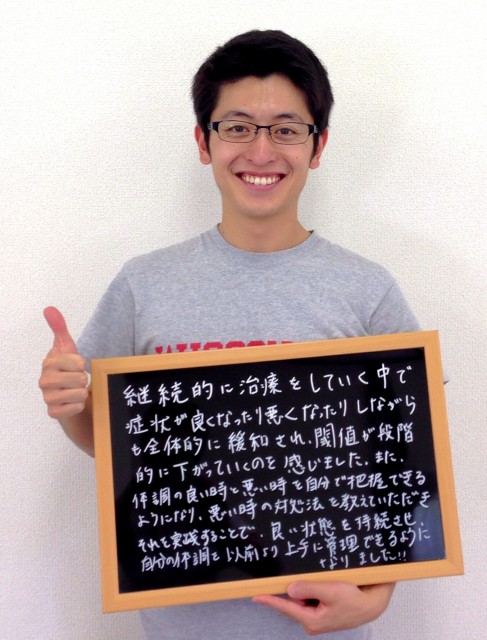 WISCON
継続的に治療をしていく中で
症状が良くなったり悪くなったりしながら
も全体的に緩和され、閾値が段階
的に下がっていくのを感じました。また、
体調の良い時と悪い時を自分で把握できる
ようになり、悪い時の対処法を教えていただき
それを実践することで、良い状態を持続させ、
自分の体調を以前より上手に管理できるように
なりました!!